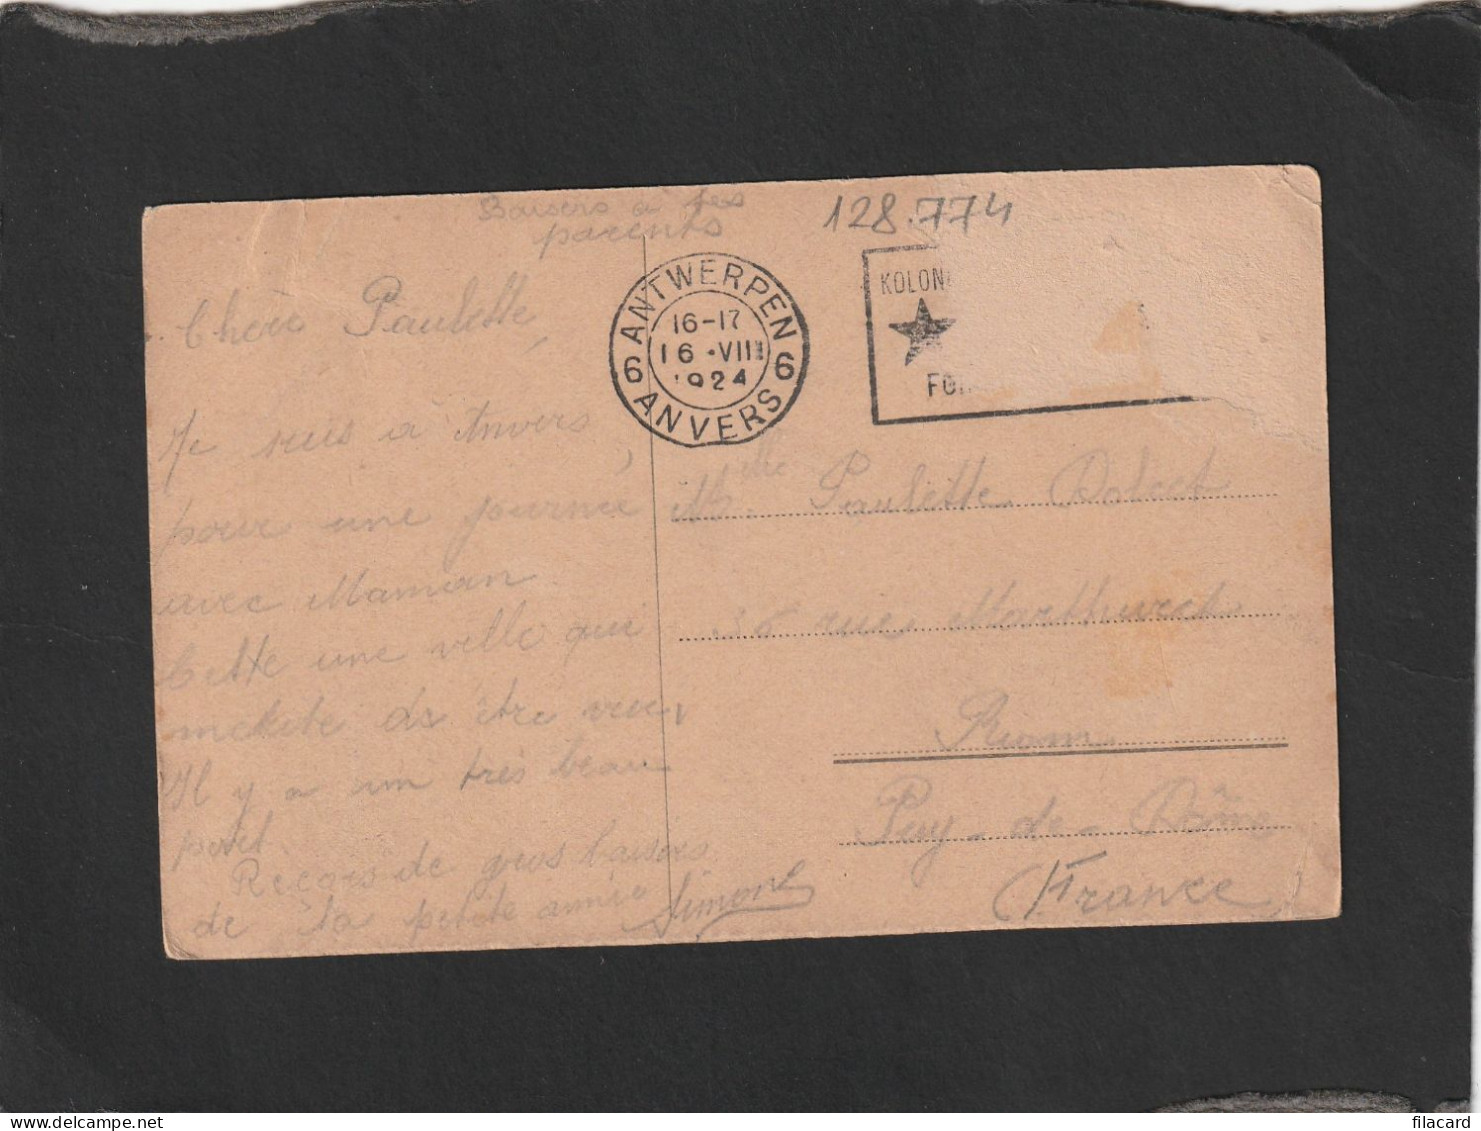 Baisers à tes
parents
128.774
Chère Paulette,
ANTWERPEN
16-17
16 ·VIII
1924
6 6
ANVERS
KOLON
Je suis à Anvers,
pour une journée
avec Maman
Cette une ville qui
mérite de être vue,
Il y a un très beau
port
Reçois de gros baisers
de ta petite amie Simone
Mlle Paulette
36 rue Marthuret
Riom
Puy-de-Dôme
(France)
filacard